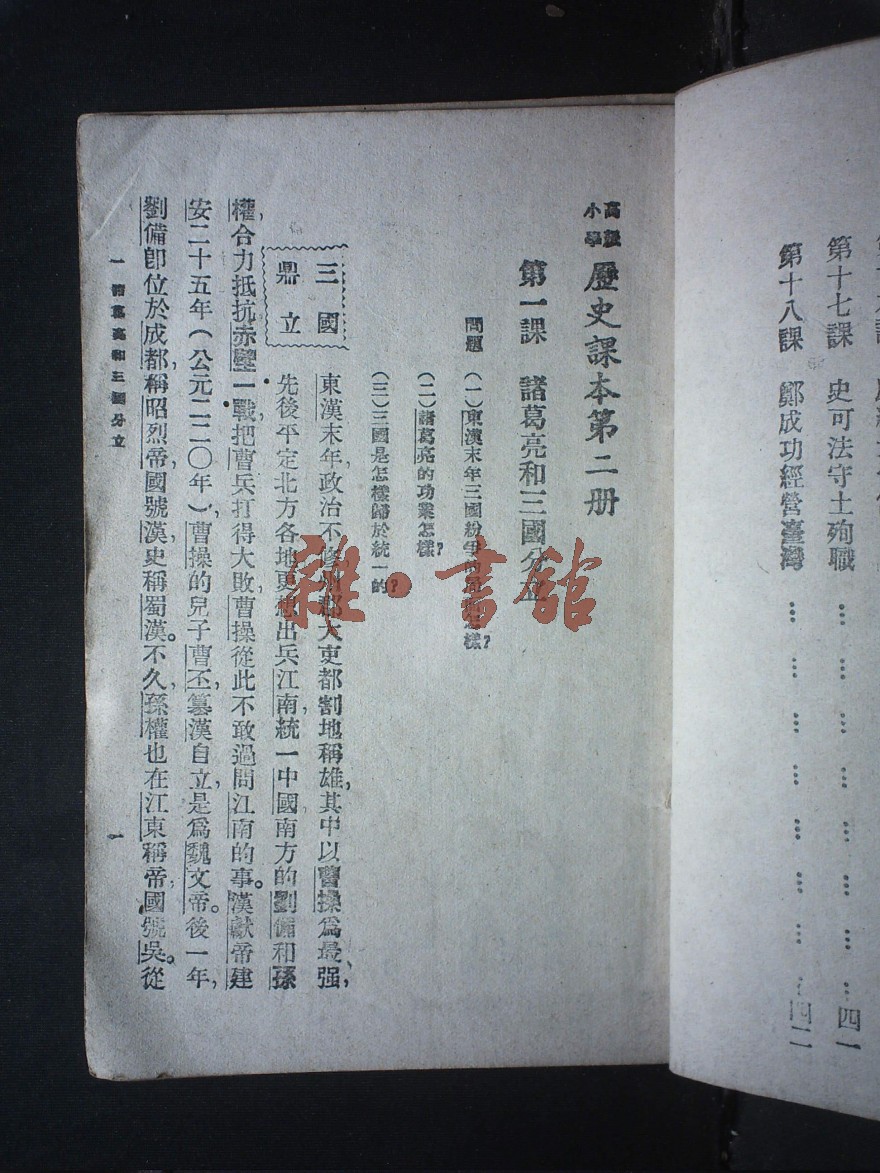 第十七課 史可法守土殉職 … … … … … … … 四一
第十八課 鄭成功經營臺灣 … … … … … … … 四二
高級小學 歷史課本第二册
第一課 諸葛亮和三國分立
問題 (一)東漢末年三國紛爭的 怎樣?
(二)諸葛亮的功業怎樣?
(三)三國是怎樣歸於統一的?
三國
鼎立
東漢末年,政治不修,州郡大吏都割地稱雄,其中以曹操爲最强,
先後平定北方各地,更想出兵江南,統一中國。南方的劉備和孫
權,合力抵抗,赤壁一戰,把曹兵打得大敗,曹操從此不敢過問江南的事。漢獻帝建
安二十五年(公元二二〇年),曹操的兒子曹丕,篡漢自立,是爲魏文帝。後一年,
劉備卽位於成都,稱昭烈帝,國號漢,史稱蜀漢。不久,孫權也在江東稱帝,國號吳。從
一 諸葛亮和三國分立
一
雜·書館